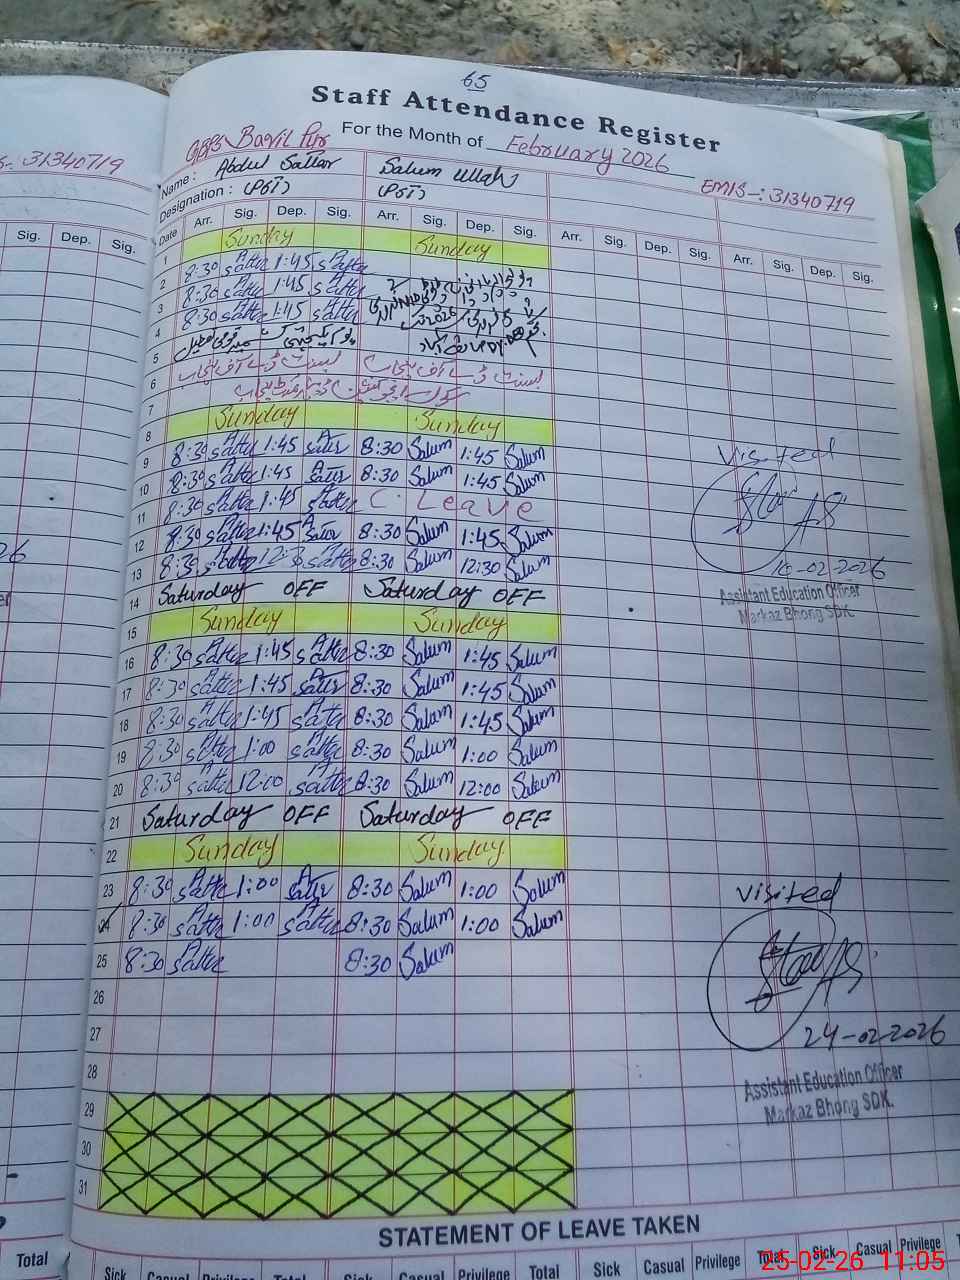 65
Staff Attendance Register
For the Month of February 2026
31340719
EMIS-: 31340719
Name: Abdul Sattar Salum ullah
Designation: (PST) (PST)
Date Arr. Sig. Dep. Sig. Arr. Sig. Dep. Sig. Arr. Sig. Dep. Sig. Arr. Sig. Dep. Sig.
Sig. Dep. Sig.
1 Sunday Sunday
2 8:30 Sattar 1:45 Sattar
3 8:30 Sattar 1:45 Sattar
4 8:30 Sattar 1:45 Sattar
5
6
7
8 Sunday Sunday
9 8:30 A Sattar 1:45 A Sattar 8:30 Salum 1:45 Salum
10 8:30 A Sattar 1:45 A Sattar 8:30 Salum 1:45 Salum
11 8:30 A Sattar 1:45 A Sattar C. Leave
12 8:30 A Sattar 1:45 A Sattar 8:30 Salum 1:45 Salum
13 8:30 Sattar 12:3 Sattar 8:30 Salum 12:30 Salum
14 Saturday OFF Saturday OFF
15 Sunday Sunday
16 8:30 A Sattar 1:45 A Sattar 8:30 Salum 1:45 Salum
17 8:30 A Sattar 1:45 A Sattar 8:30 Salum 1:45 Salum
18 8:30 A Sattar 1:45 A Sattar 8:30 Salum 1:45 Salum
19 8:30 A Sattar 1:00 A Sattar 8:30 Salum 1:00 Salum
20 8:30 A Sattar 12:00 A Sattar 8:30 Salum 12:00 Salum
21 Saturday OFF Saturday OFF
22 Sunday Sunday
23 8:30 A Sattar 1:00 A Sattar 8:30 Salum 1:00 Salum
24 8:30 A Sattar 1:00 A Sattar 8:30 Salum 1:00 Salum
25 8:30 A Sattar 8:30 Salum
26
27
28
29
30
31
Visited
10-02-2026
Assistant Education Officer
Markaz Bhong SDK.
Visited
24-02-2026
Assistant Education Officer
Markaz Bhong SDK.
STATEMENT OF LEAVE TAKEN
Total Sick Casual Privilege Total Sick Casual Privilege Total Sick Casual Privilege Total Sick Casual Privilege
25-02-26 11:05